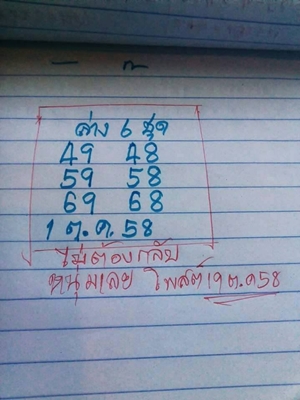 ล่าง 6 ชุด
49 48
59 58
69 68
1 ต.ค. 58
ไม่ต้องกลับ
หนุ่มเลย โพสต์ 19 ต.ค 58